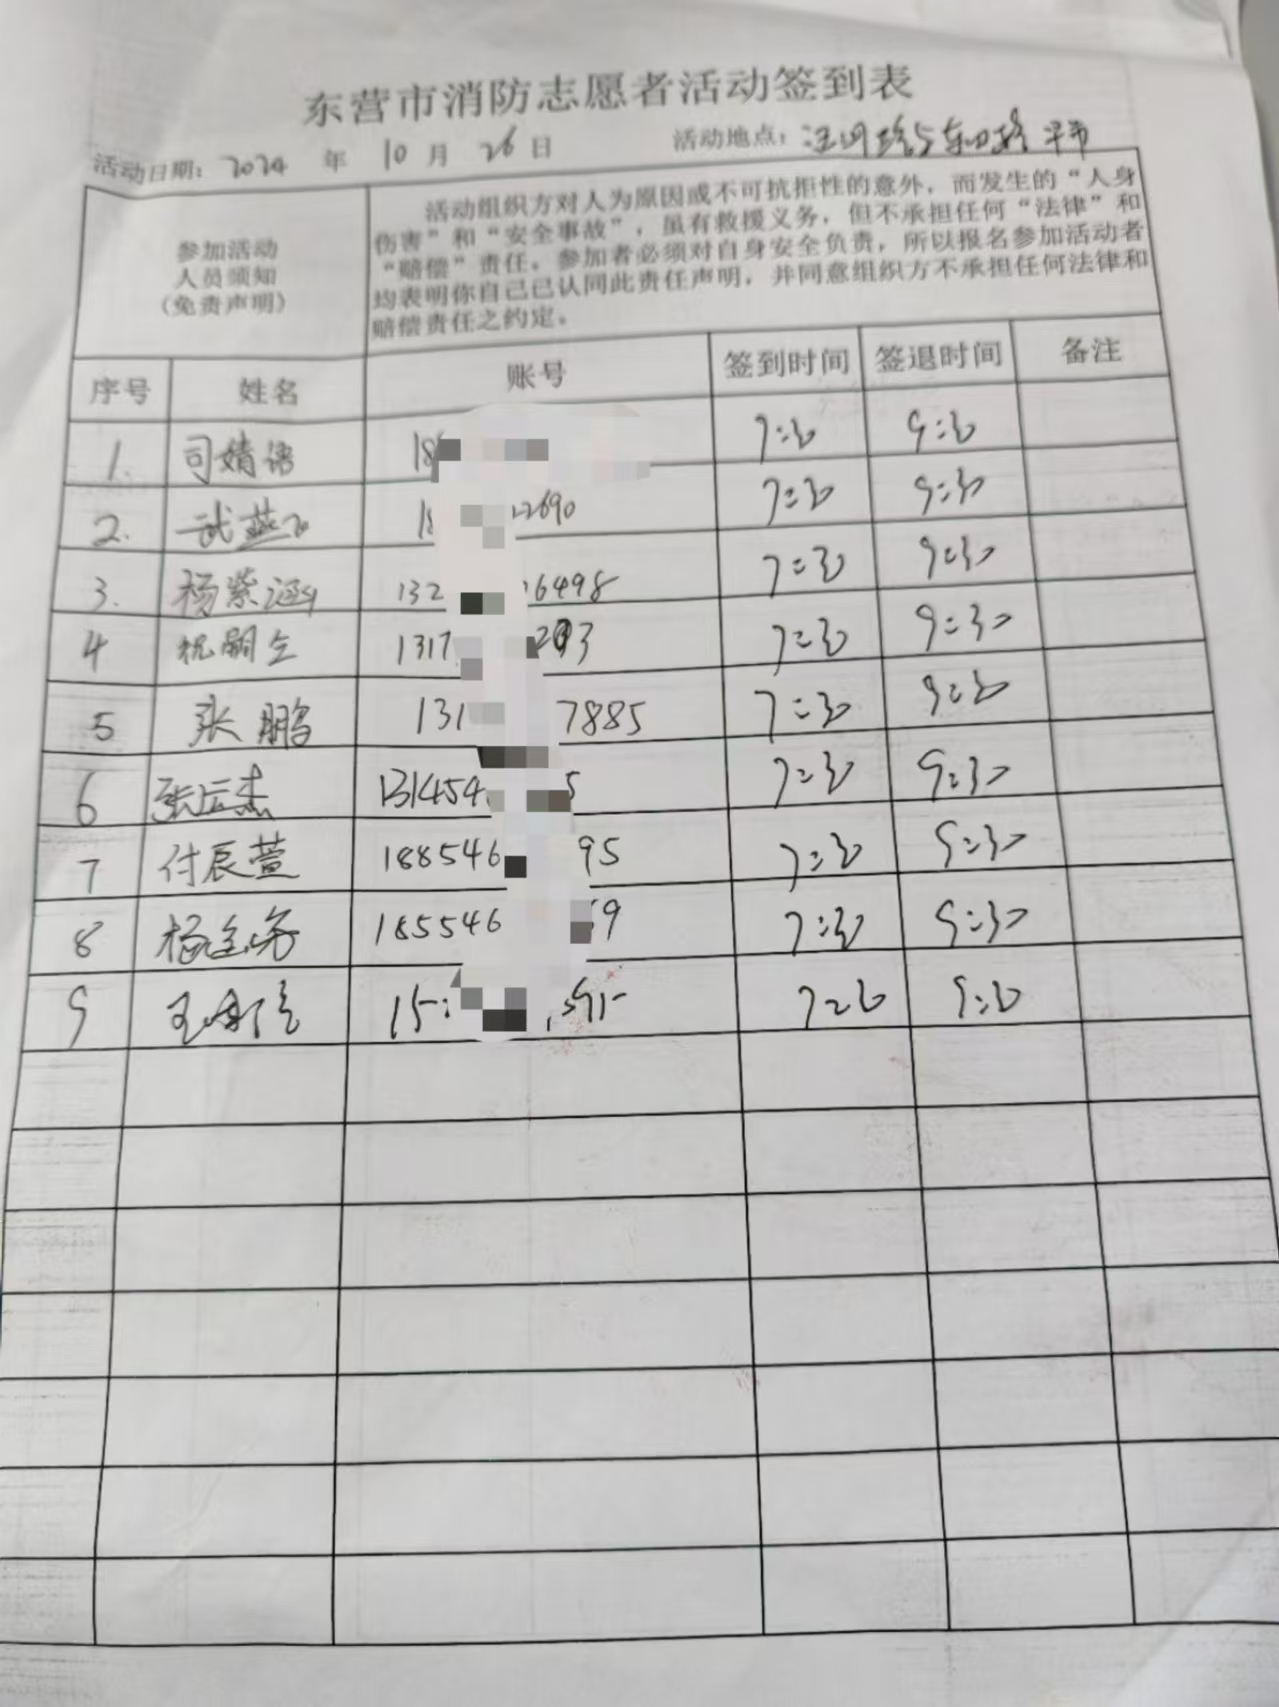 东营市消防志愿者活动签到表
活动日期：2024 年 10 月 26 日 活动地点：
参加活动
人员须知
（免责声明）
活动组织方对人为原因或不可抗拒性的意外，而发生的“人身
伤害”和“安全事故”，虽有救援义务，但不承担任何“法律”和
“赔偿”责任。参加者必须对自身安全负责，所以报名参加活动者
均表明你自己已认同此责任声明，并同意组织方不承担任何法律和
赔偿责任之约定。
序号 姓名 账号 签到时间 签退时间 备注
1. 司婧 18 7:30 9:30
2. 武燕 18 2690 7:30 9:30
3. 杨紫涵 132 6498 7:30 9:30
4 祝嗣 1317 7:30 9:30
5 张鹏 131 7885 7:30 9:30
6 张云杰 131454 5 7:30 9:30
7 付辰萱 188546 95 7:30 9:30
8 杨 185546 69 7:30 9:30
9 王 15 7:30 9:30